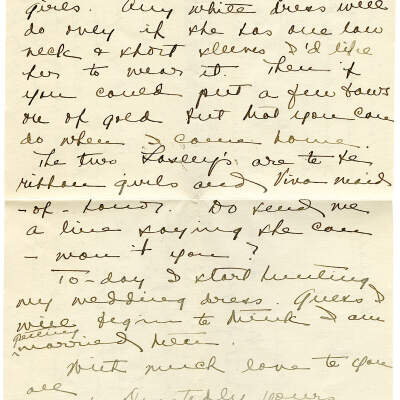 girls. Any white dress will
do only if she has one low
neck & short sleeves I'd like
her to wear it. Then if
you could put a few bows
on of gold but that you can
do when I come home.
The two Losley's are to be
ribbon girls and Viva maid
-of-honor. Do send me
a line saying she can
- won't you?
To-day I start hunting
my wedding dress. Guess I
will begin to think I am
getting
married then.
With much love to you
all
yours